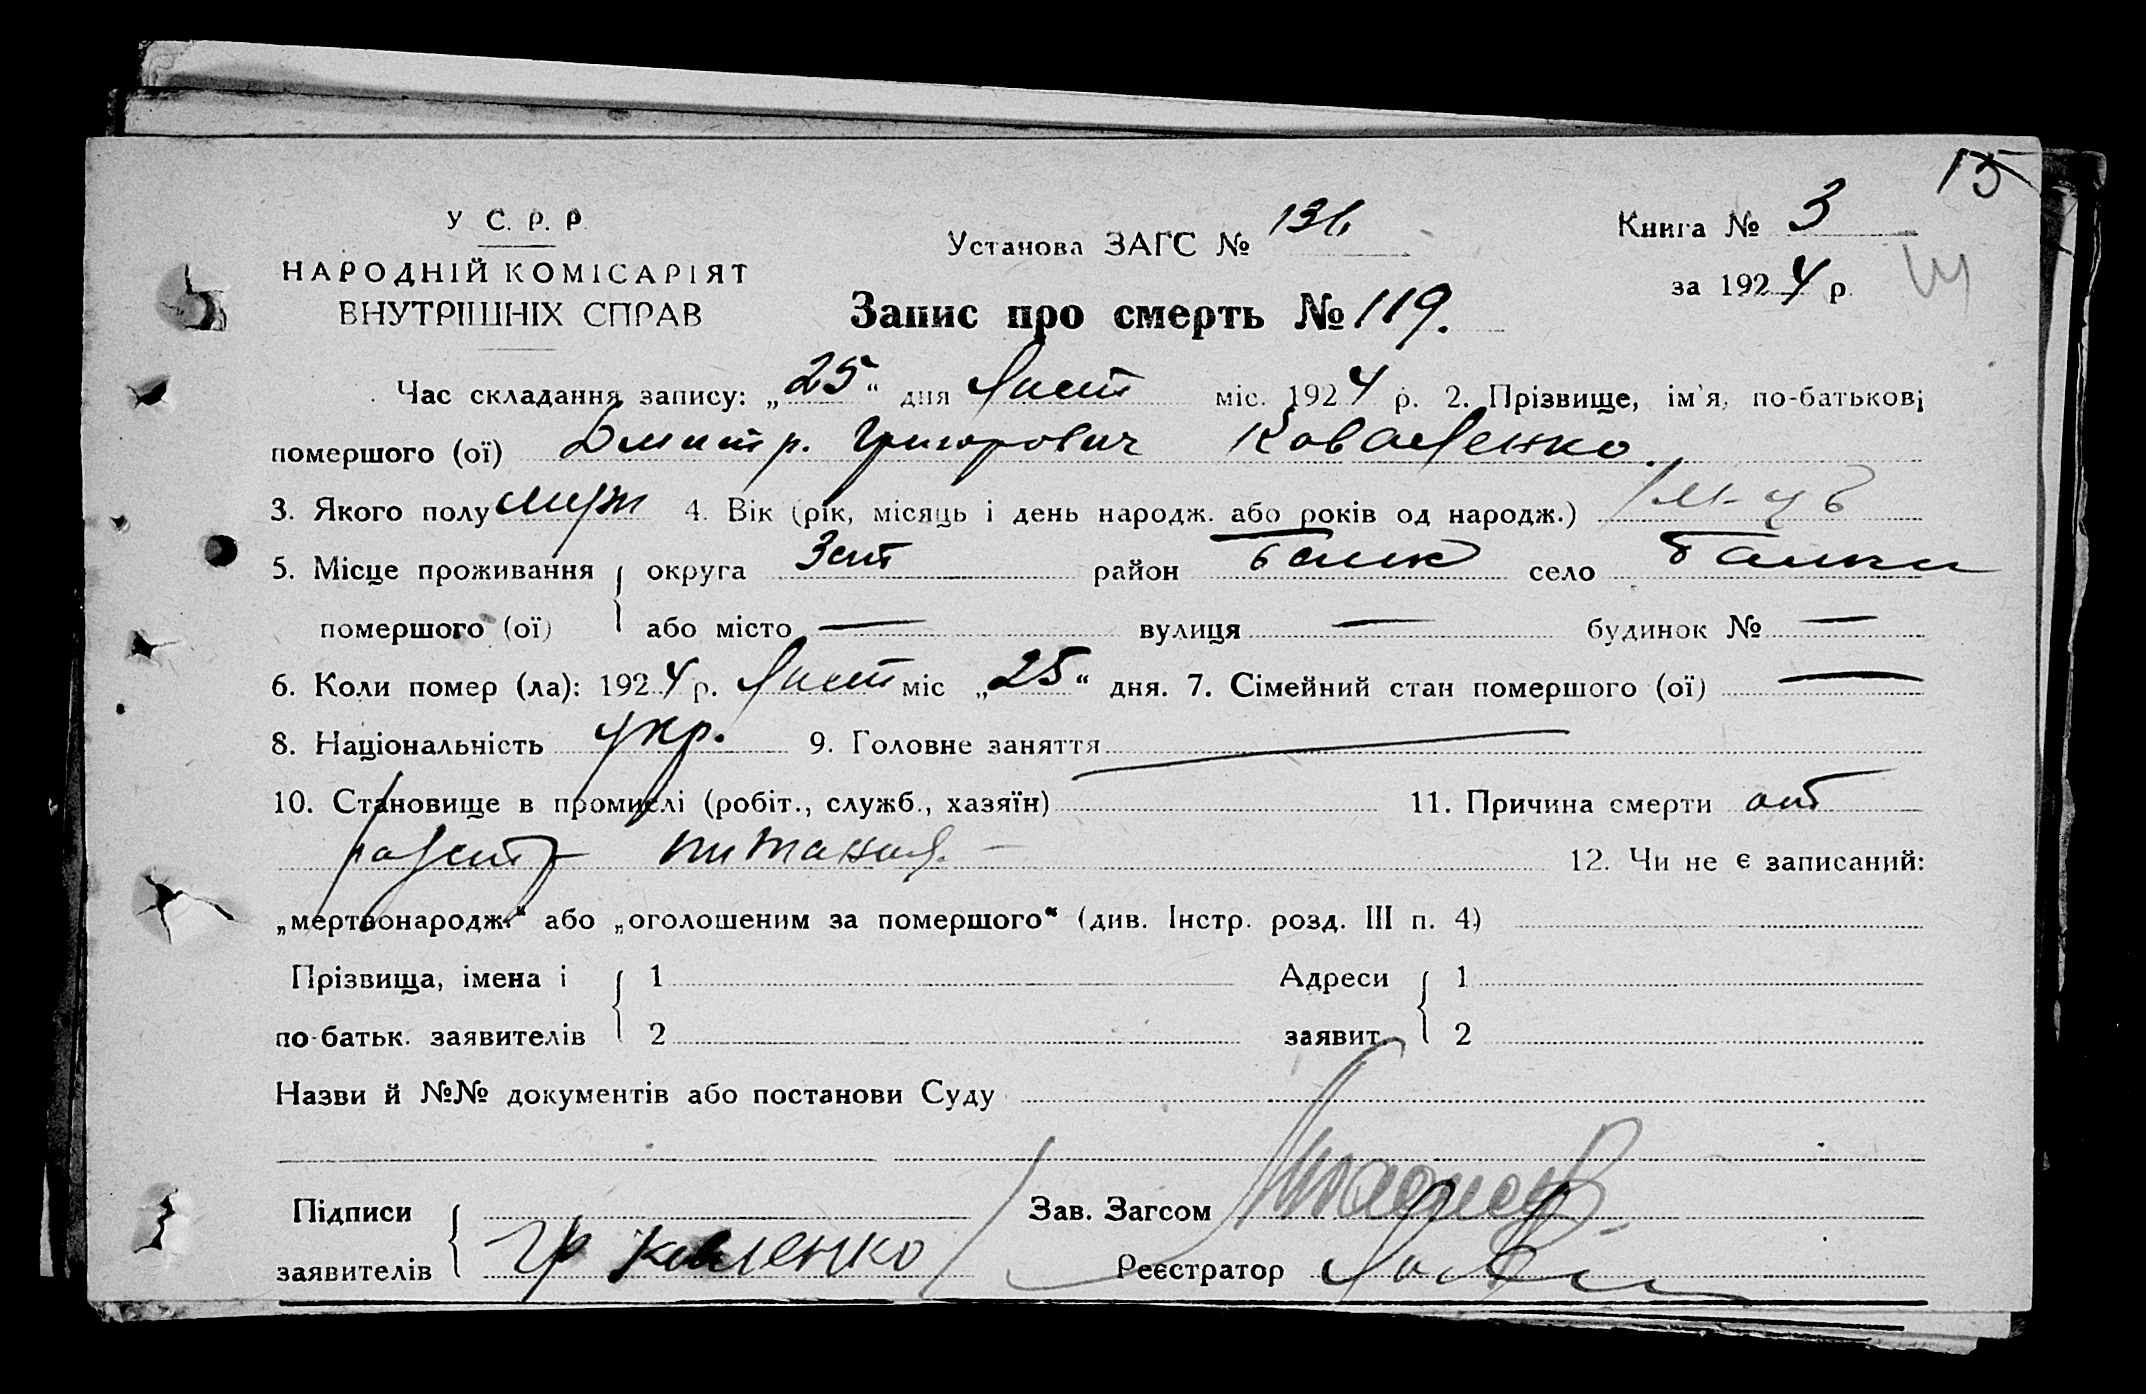 15
У С. Р. Р.
НАРОДНІЙ КОМІСАРІЯТ
ВНУТРІШНІХ СПРАВ
Установа ЗАГС №
Книга № 3
за 1924 р.
Запис про смерть № 119.
Час складання запису: „25“ дня Лист міс. 1924 р. 2. Прізвище, ім'я, по-батькові
помершого (ої) Дмитр. Григорович Коваленко.
3. Якого полу муж 4. Вік (рік, місяць і день народж. або років од народж.)
5. Місце проживання округа район село
помершого (ої) або місто — вулиця — будинок № —
6. Коли помер (ла): 1924 р. Лист міс „25“ дня. 7. Сімейний стан помершого (ої) —
8. Національність укр. 9. Головне заняття —
10. Становище в промислі (робіт., служб., хазяїн) 11. Причина смерти от
питания. 12. Чи не є записаний:
„мертвонародж.“ або „оголошеним за помершого“ (див. Інстр. розд. III п. 4)
Прізвища, імена і 1 Адреси 1
по-батьк. заявителів 2 заявит. 2
Назви й №№ документів або постанови Суду
Підписи Зав. Загсом
заявителів Гр Реєстратор